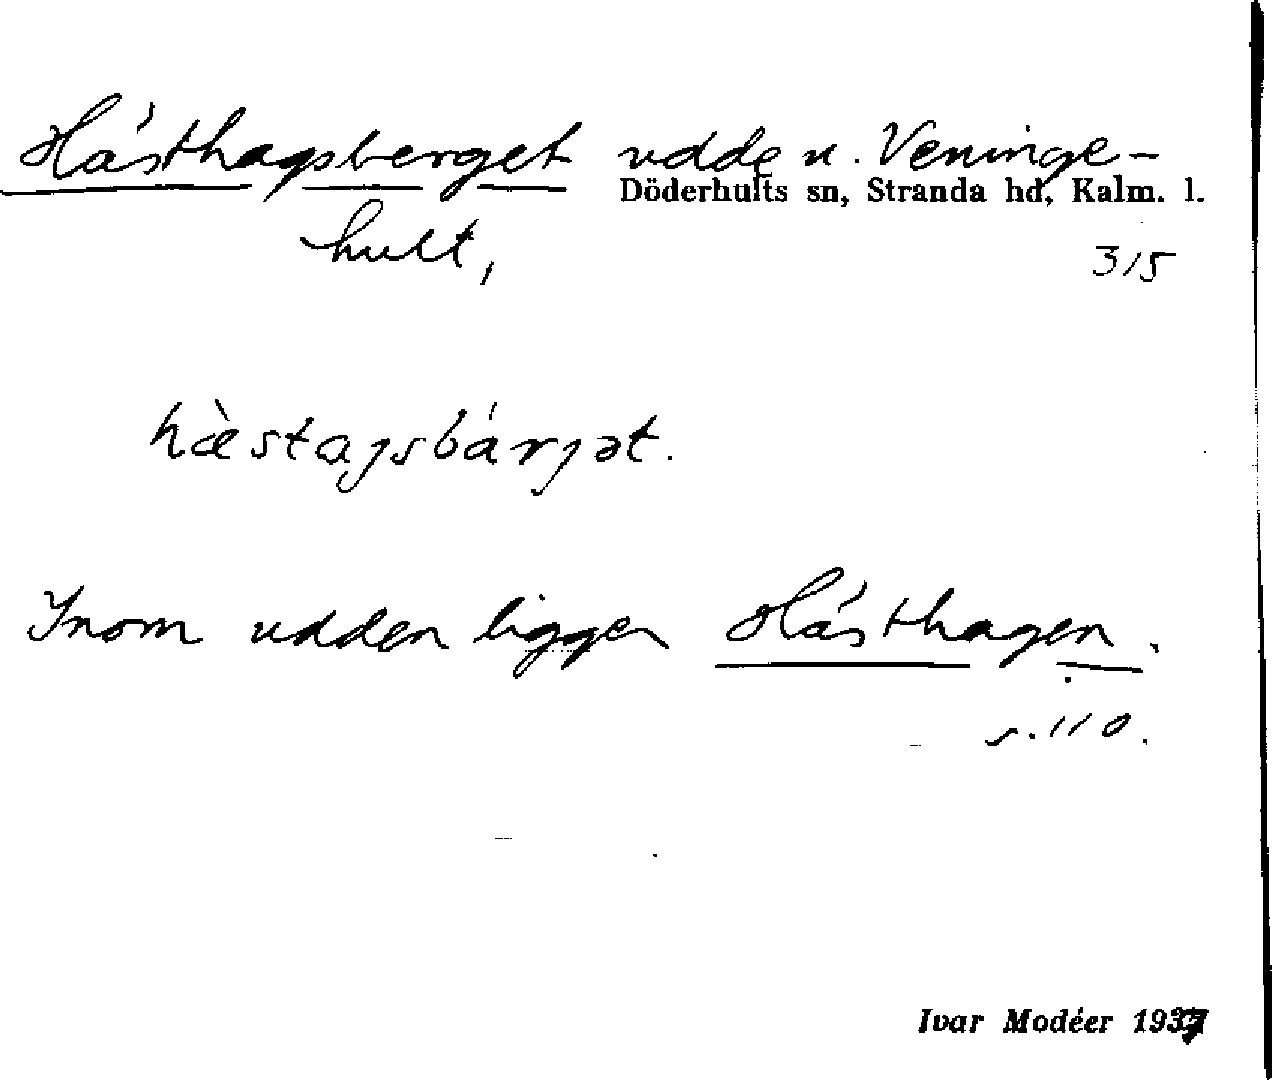 Hästhagsberget udde u. Veninge-
Döderhults sn, Stranda hd, Kalm. l.
hult,
315
hæ̀stagsbárjət.
Inom udden ligger Hästhagen.
s. 110.
Ivar Modéer 1937